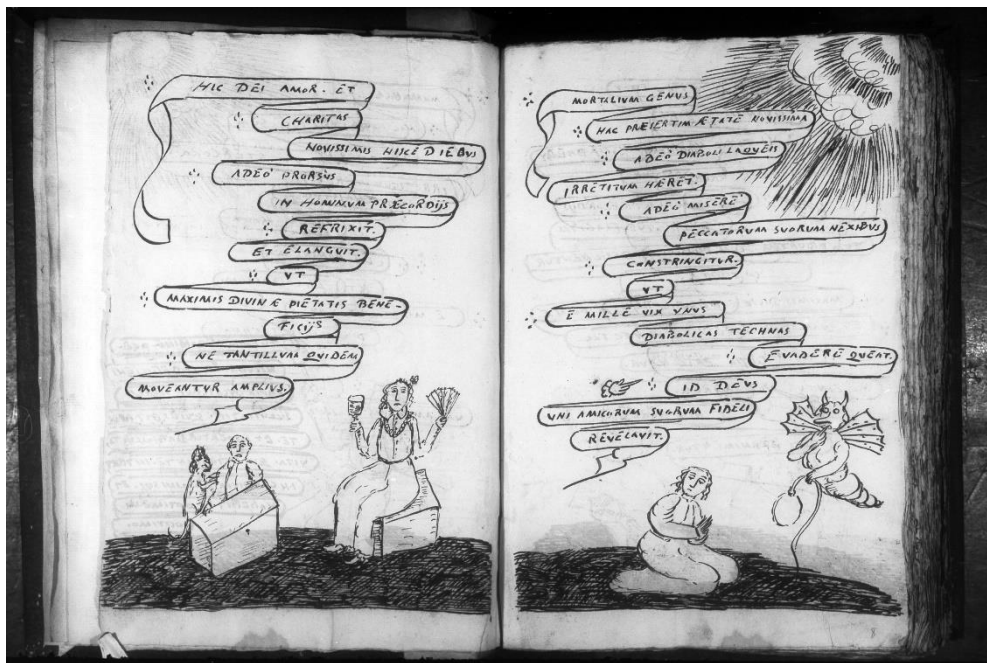 HIC DEI AMOR. ET
CHARITAS
NOVISSIMIS HISCE DIEBVS
ADEÓ PRORSVS
IN HOMINVM PRÆCORDIJS
REFRIXIT.
ET ELANGVIT.
VT
MAXIMIS DIVINÆ PIETATIS BENE-
FICIJS
NE TANTILLVM QVIDEM
MOVEANTVR AMPLIVS.
MORTALIVM GENVS
HAC PRÆSERTIM ÆTATE NOVISSIMA
ADEÓ DIABOLI LAQVEIS
IRRETITVM HÆRET.
ADEÓ MISERÉ
PECCATORVM SVORVM NEXIBVS
CONSTRINGITVR.
VT
É MILLE VIX VNVS
DIABOLICAS TECHNAS
EVADERE QVEAT.
ID DEVS
VNI AMICORVM SVORVM FIDELI
REVELAVIT.